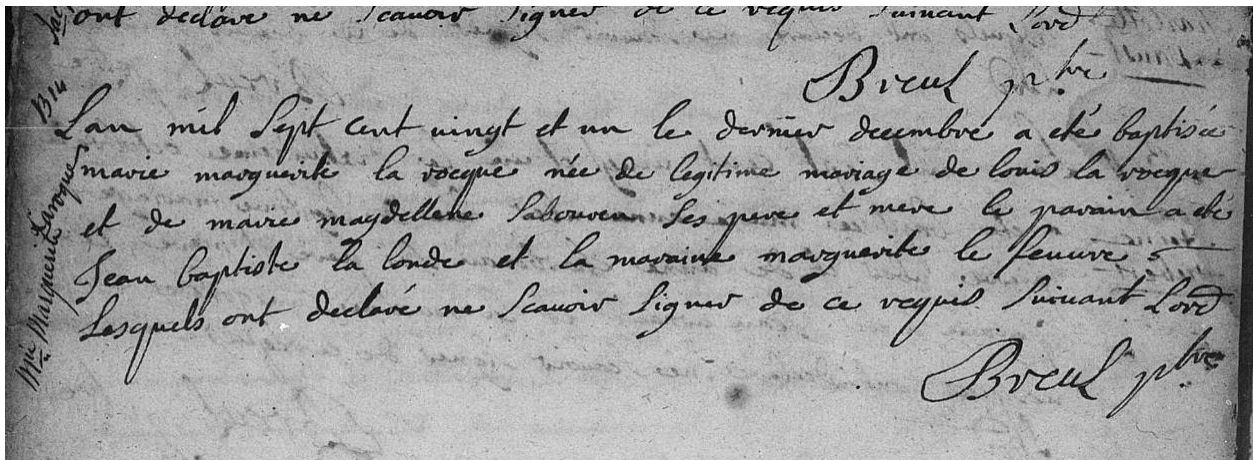 ont declaré ne scavoir signer de ce requis suivant Lord
Breul ptre
B14
Mie Marguerite Larocque
Lan mil sept cent vingt et un le dernier decembre a eté baptisée
marie marguerite la rocque née de legitime mariage de louis la rocque
et de marie magdellene sabourin ses pere et mere le parain a eté
Jean baptiste la londe et la maraine marguerite le feuvre
Lesquels ont declaré ne scavoir signer de ce requis suivant Lord
Breul ptre